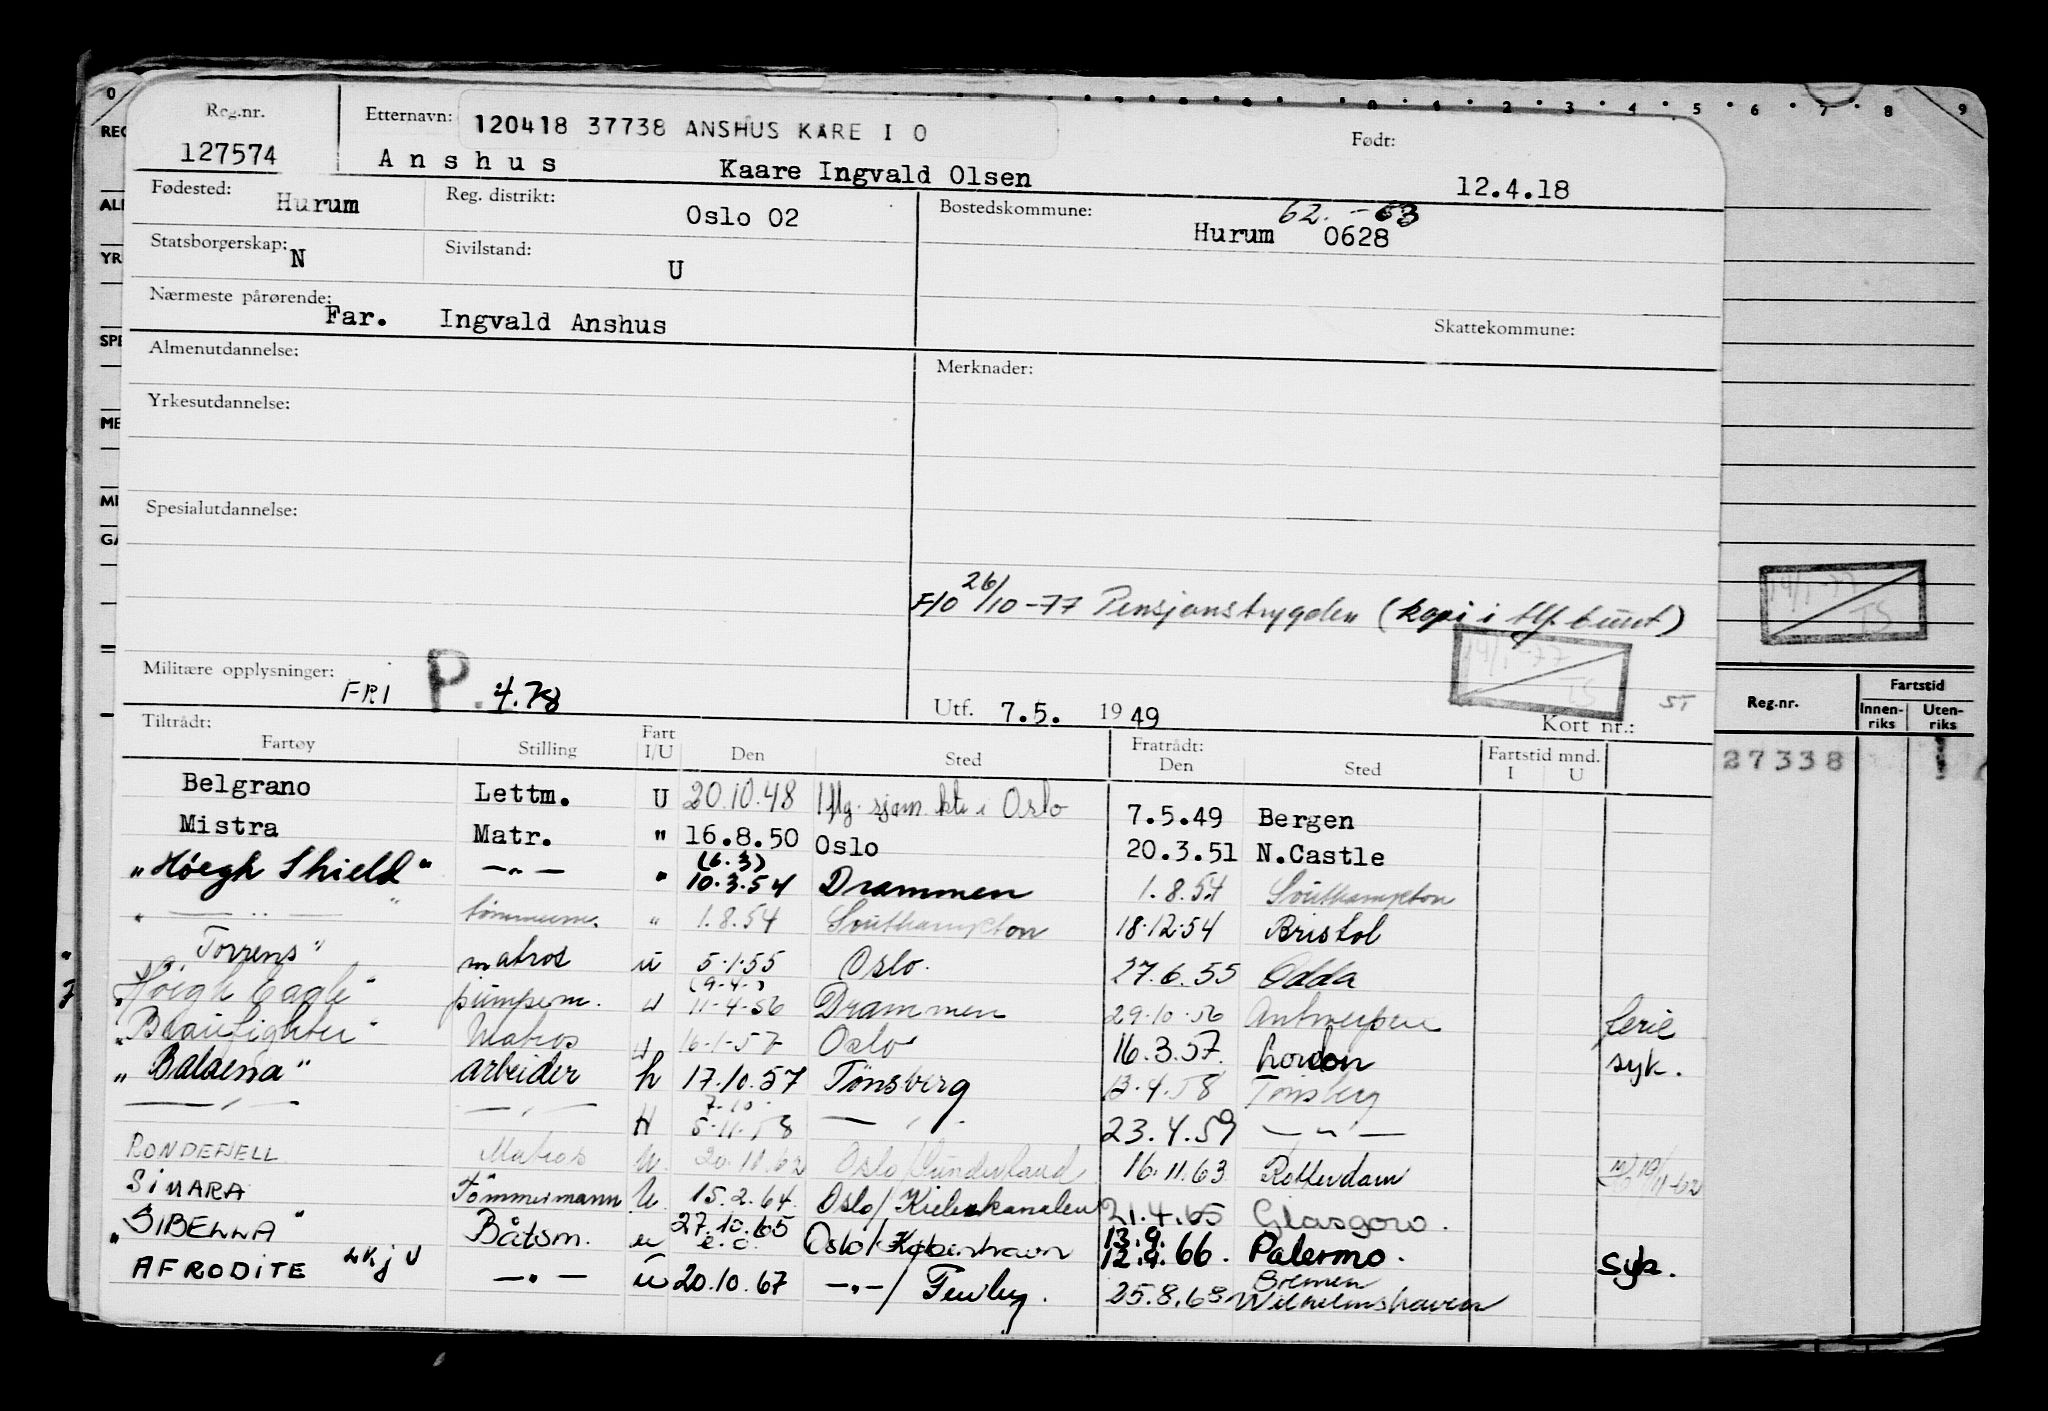 Reg.nr. Etternavn: 120418 37738 ANSHUS KARE I O Født:
127574 Anshus Kaare Ingvald Olsen 12.4.18
Fødested: Hurum Reg. distrikt: Oslo 02 Bostedskommune: 62.-63
Hurum 0628
Statsborgerskap: N Sivilstand: U
Nærmeste pårørende: Far. Ingvald Anshus Skattekommune:
Almenutdannelse: Merknader:
Yrkesutdannelse:
Spesialutdannelse:
F/0 26/10-77 Pensjonstrygden (kopi i
19/1-77
TS
19/1-77
TS
Militære opplysninger: FRI P. 4.78 Utf. 7.5. 1949 Kort nr.: ST
Reg.nr. Fartstid
Innen-riks Uten-riks
27338
Tiltrådt: Fratrådt:
Fartøy Stilling Fart I/U Den Sted Den Sted Fartstid mnd. I U
Belgrano Lettm. U 20.10.48 Oslo 7.5.49 Bergen
Mistra Matr. " 16.8.50 Oslo 20.3.51 N.Castle
"Höegh Shield" —"— " (6.3) 10.3.54 Drammen 1.8.54 Southampton
" —"— " tømmerm. " 1.8.54 Southampton 18.12.54 Bristol
"Torrens" matros u 5.1.55 Oslo. 27.6.55 Odda
"Höegh Eagle" pumpem. u (9.4.) 11.4.56 Drammen 29.10.56 Antwerpen ferie
"Beaufighter" Matros u 16.1.57 Oslo 16.3.57. London syk.
"Balaena" arbeider h 17.10.57 Tönsberg 13.4.58 Tönsberg
—"— —"— H 7.10. 5.11.58 —"— 23.4.59 —"—
RONDEFJELL Matros U. 20.11.62 Oslo/Sunderland 16.11.63 Rotterdam
SINARA Tömmermann U. 15.2.64. Oslo/Kielerkanalen 21.4.65 Glasgow.
"SIBELLA" Båtsm. u 27.10.65 e.o. Oslo/Köbenhavn 13.9. 12.9.66. Palermo. syk.
AFRODITE —"— u 20.10.67 —"—/ 25.8.68 Bremen Wilhelmshaven